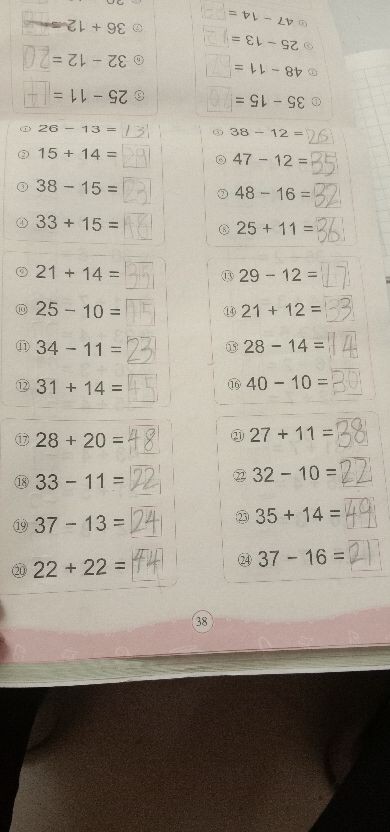 ① 35 − 15 =
⑤ 25 − 11 =
48 − 11 =
⑥ 32 − 12 = 20
25 − 13 =
36 + 12 =
47 − 14 =
① 26 − 13 = 13
⑤ 38 − 12 = 26
② 15 + 14 = 29
⑥ 47 − 12 = 35
③ 38 − 15 = 23
⑦ 48 − 16 = 32
④ 33 + 15 = 48
⑧ 25 + 11 = 36
⑨ 21 + 14 = 35
⑬ 29 − 12 = 17
⑩ 25 − 10 = 15
⑭ 21 + 12 = 33
⑪ 34 − 11 = 23
⑮ 28 − 14 = 14
⑫ 31 + 14 = 45
⑯ 40 − 10 = 30
⑰ 28 + 20 = 48
㉑ 27 + 11 = 38
⑱ 33 − 11 = 22
㉒ 32 − 10 = 22
⑲ 37 − 13 = 24
㉓ 35 + 14 = 49
⑳ 22 + 22 = 44
㉔ 37 − 16 = 21
38